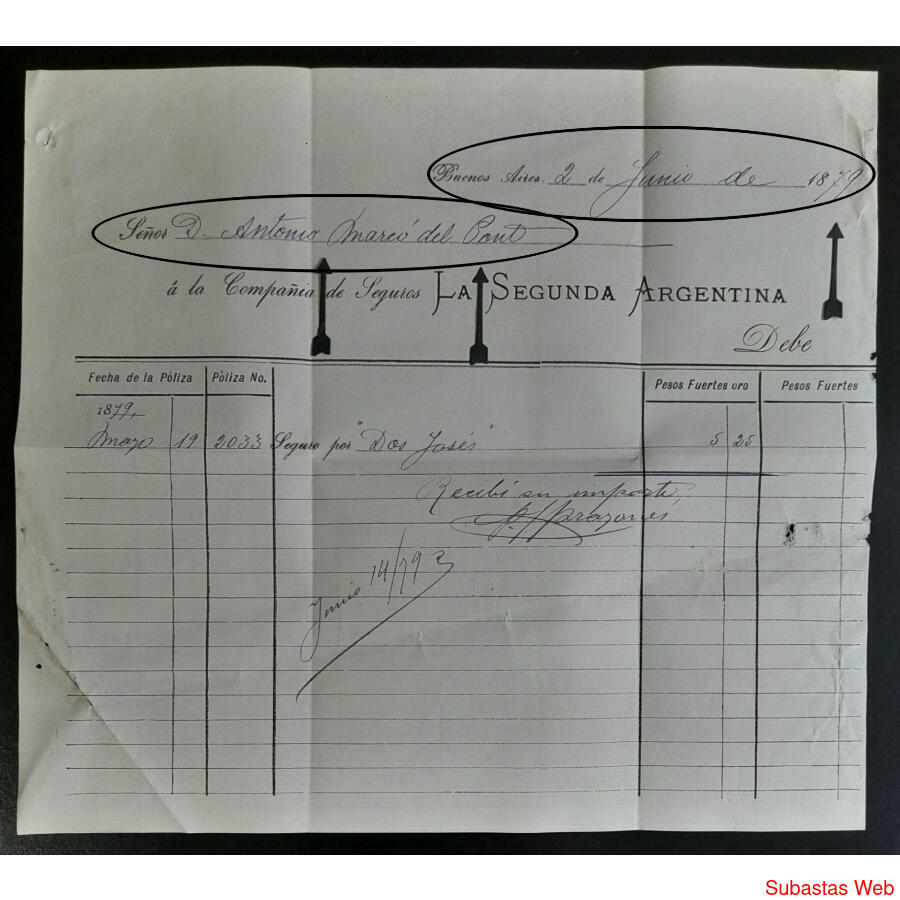 Buenos Aires. 2 de Junio de 1879
Señor D. Antonio Marcó del Pont
á la Compañia de Seguros LA SEGUNDA ARGENTINA
Debe
Fecha de la Póliza Póliza No. Pesos Fuertes oro Pesos Fuertes
1879,
Mayo 19 2033 Seguro por "Dos Josés" 5 25
Recibí su importe,
Junio 14/79
Subastas Web